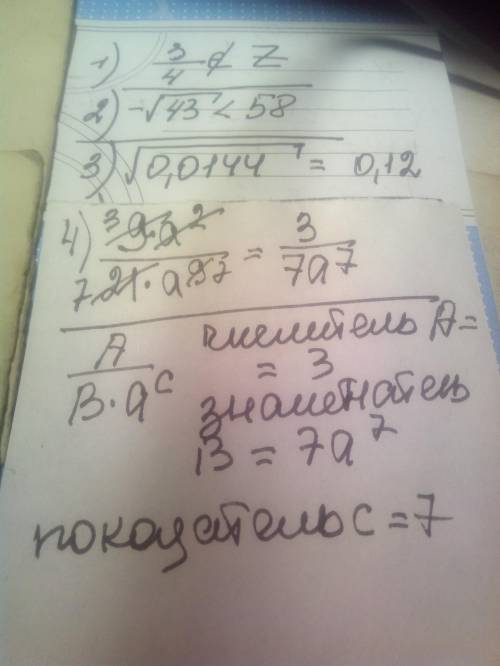 1) 3/4 ∉ Z
2) -√43 < 58
3) √0,0144 = 0,12
4) 3 9·a² / 7 21·a⁹ 7 = 3/7a⁷
A/B·aᶜ числитель A=
= 3
знаменатель
B = 7a⁷
показатель c = 7